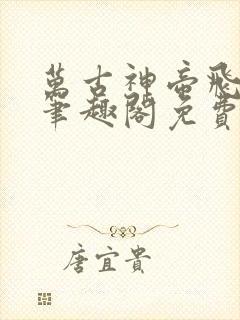 萬古神帝飛
筆趣閣免費
唐宜貴